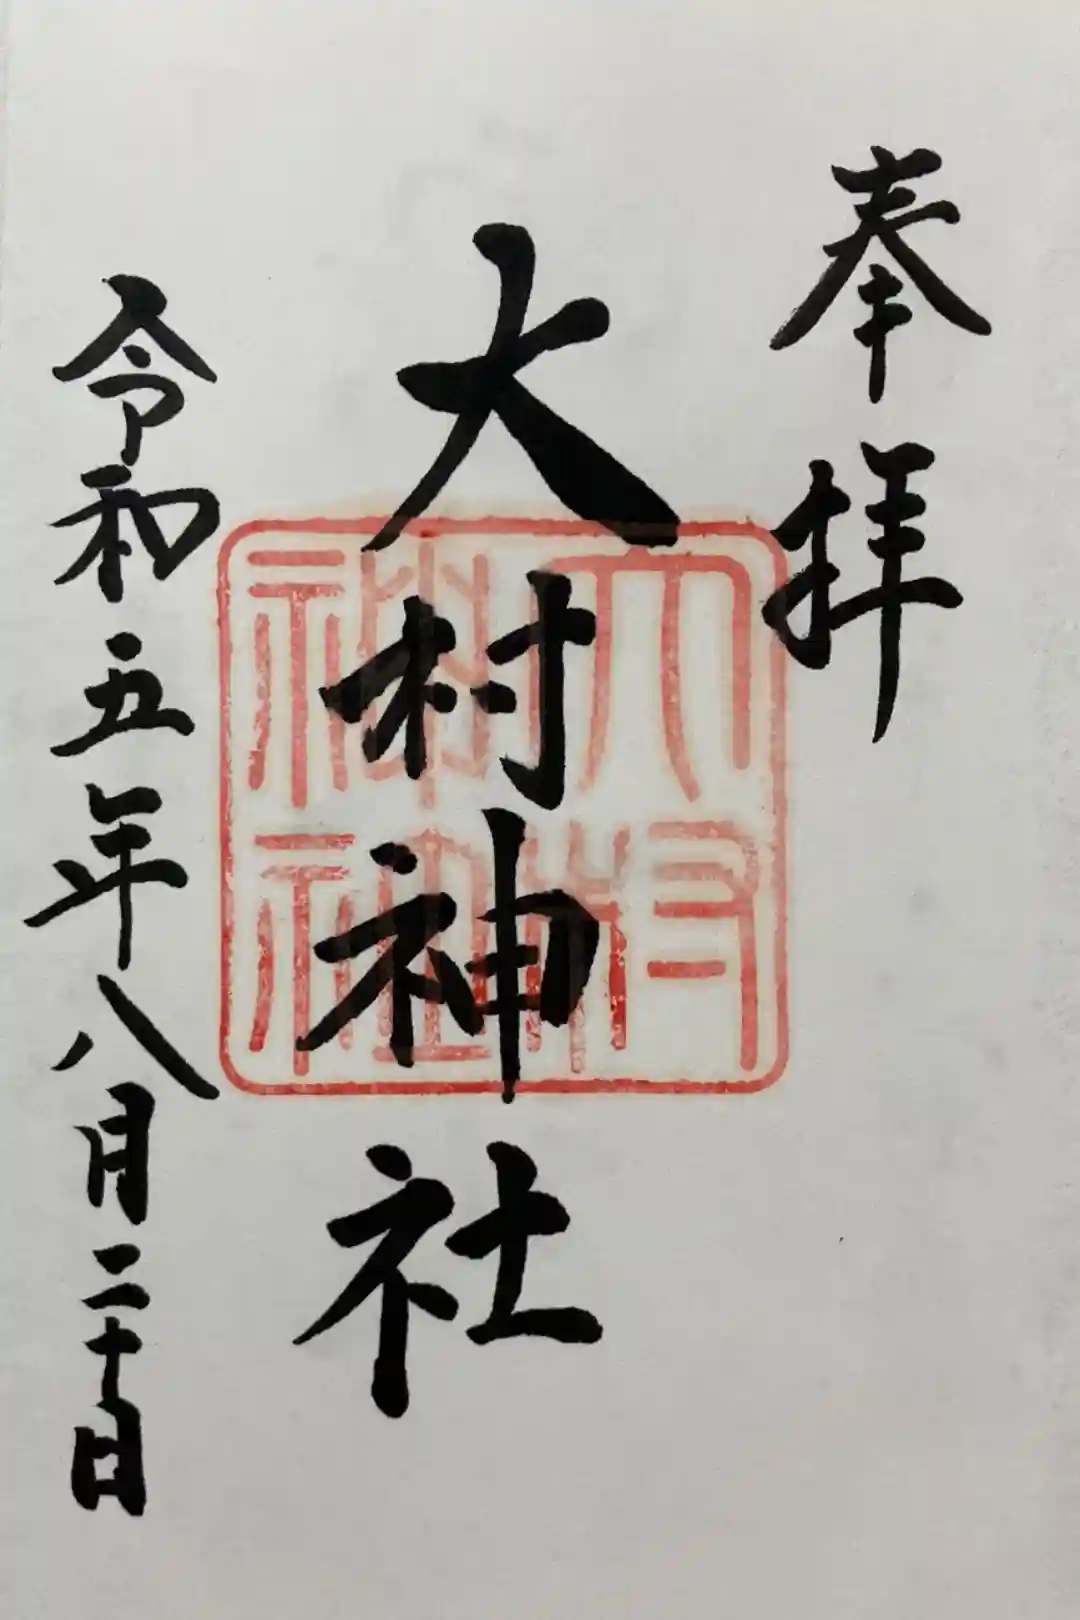 奉拝
大村神社
大村神社
令和五年八月二十日